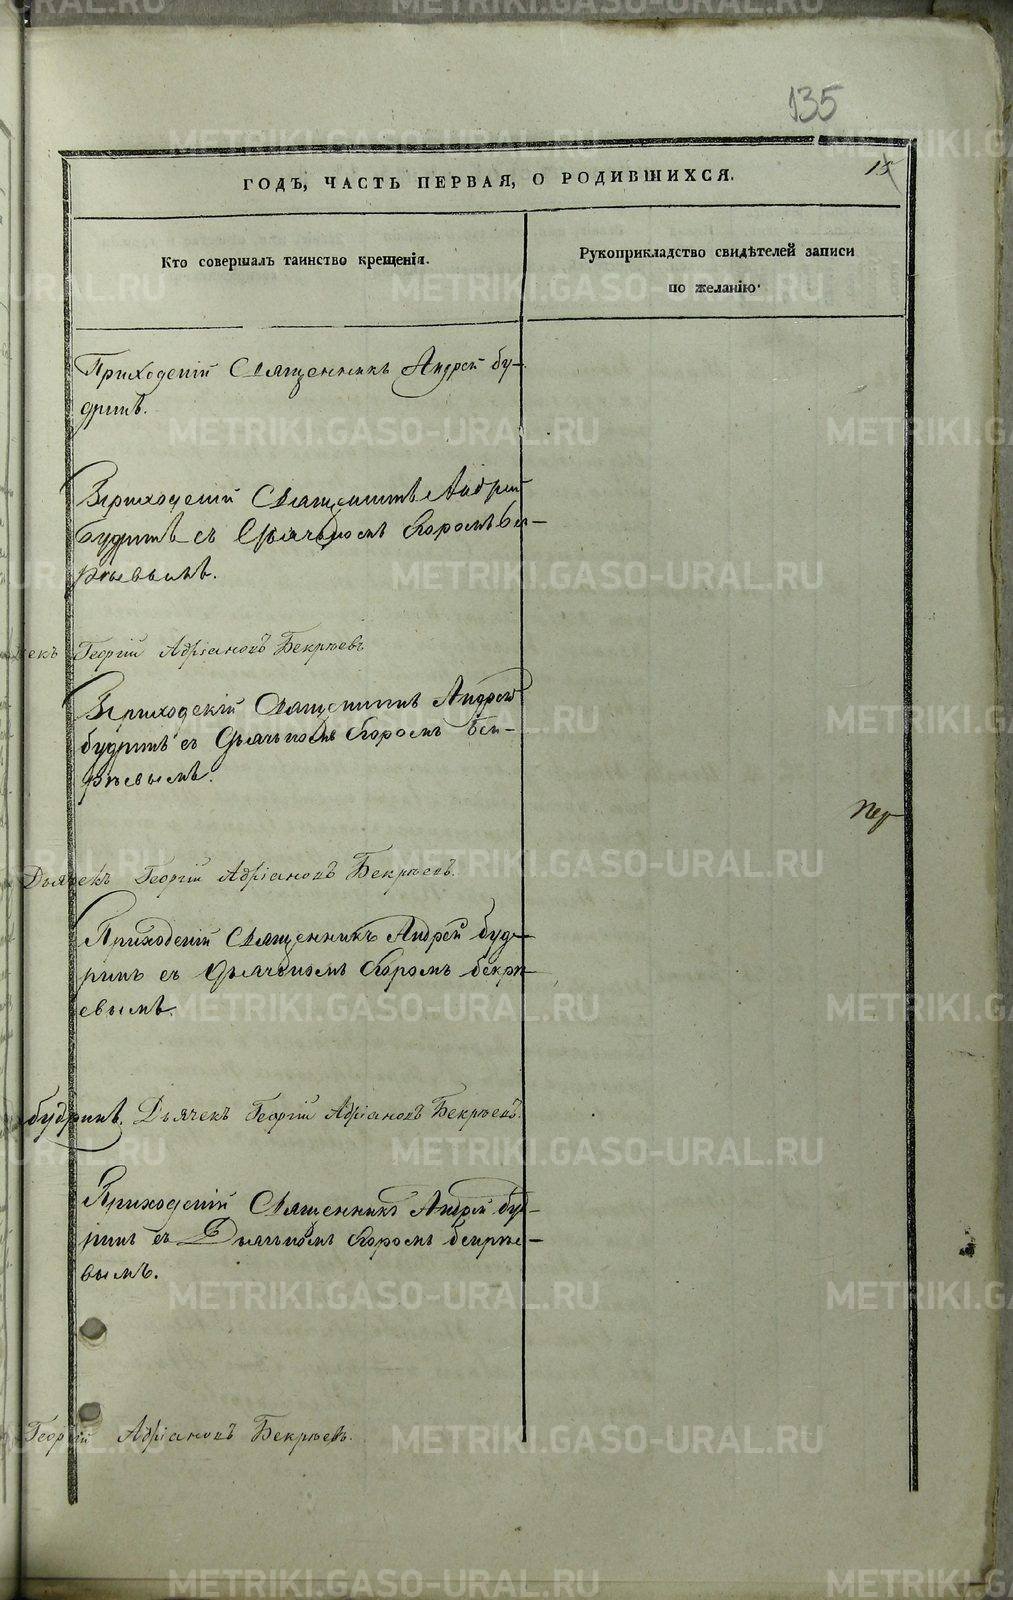 135
15
ГОДЪ, ЧАСТЬ ПЕРВАЯ, О РОДИВШИХСЯ.
Кто совершалъ таинство крещенія.
Рукоприкладство свидѣтелей записи
по желанію.
Приходскій Священникъ Андрей Бу-
дринъ.
Приходскій Священникъ Андрей
Будринъ съ Дьячькомъ Егоромъ Бек-
рѣевымъ.
Георгій Адріановъ Бекрѣевъ
Приходскій Священникъ Андрей
Будринъ съ Дьячькомъ Егоромъ Бек-
рѣевымъ.
Дьячекъ Георгій Адріановъ Бекрѣевъ.
Приходскій Священникъ Андрей Буд-
ринъ съ Дьячькомъ Егоромъ Бекрѣ-
евымъ.
Будринъ. Дьячекъ Георгій Адріановъ Бекрѣевъ.
Приходскій Священникъ Андрей Буд-
ринъ съ Дьячькомъ Егоромъ Бекрѣе-
вымъ.
Георгій Адріановъ Бекрѣевъ.
METRIKI.GASO-URAL.RU